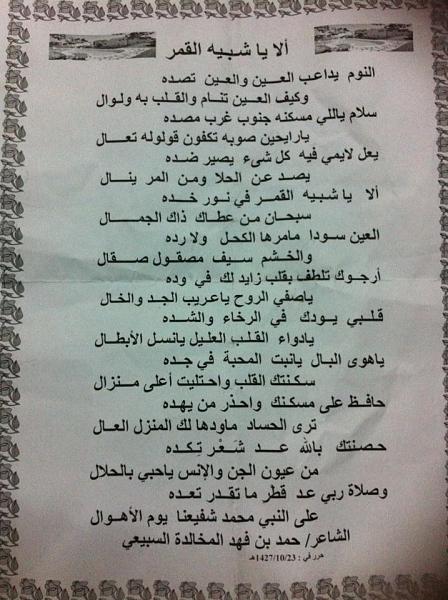 ألا يا شبيه القمر
النوم يداعب العين والعين تصده
وكيف العين تنام والقلب به ولوال
سلام ياللي مسكنه جنوب غرب مصده
يارايحين صوبه تكفون قولوله تعال
يعل لايمي فيه كل شيء يصير ضده
يصد عن الحلا ومن المر ينال
ألا يا شبيه القمر في نور خده
سبحان من عطاك ذاك الجمال
العين سودا مامرها الكحل ولا رده
والخشم سيف مصقول صقال
أرجوك تلطف بقلب زايد لك في وده
ياصفي الروح ياعريب الجد والخال
قلبي يودك في الرخاء والشده
يادواء القلب العليل يانسل الأبطال
ياهوى البال يانبت المحبة في جده
سكنتك القلب واحتليت أعلى منزال
حافظ على مسكنك واحذر من يهده
ترى الحساد ماودها لك المنزل العال
حصنتك بالله عد شَعَرْ تِكده
من عيون الجن والإنس ياحبي بالحلال
وصلاة ربي عد قطر ما تقدر تعده
على النبي محمد شفيعنا يوم الأهوال
الشاعر/ حمد بن فهد المخالدة السبيعي
حرر في : 1427/10/23هـ